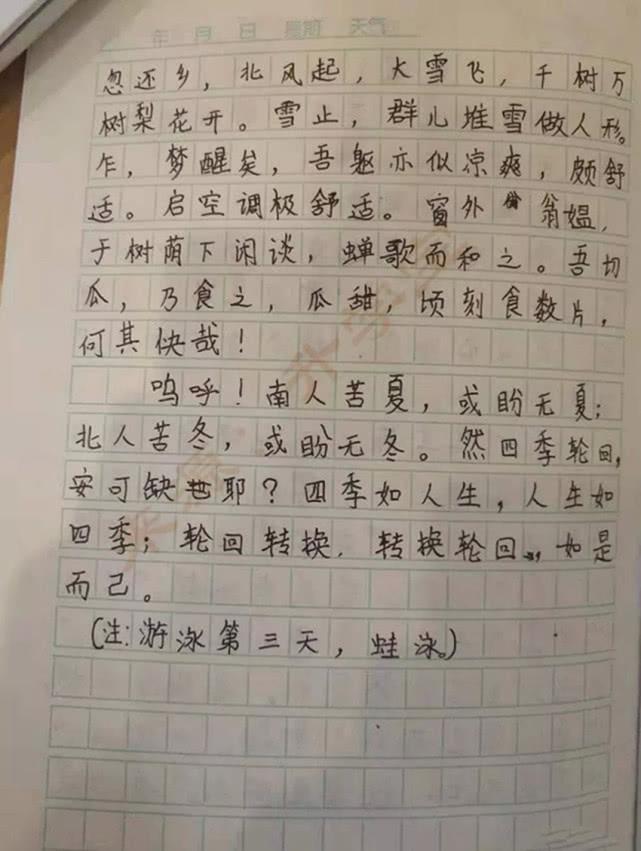 年 月 日 星期 天气
忽还乡，北风起，大雪飞，千树万
树梨花开。雪止，群儿堆雪做人形。
乍，梦醒矣，吾躯亦似凉爽，颇舒
适。启空调极舒适。窗外翁媪，
于树荫下闲谈，蝉歌而和之。吾切
瓜，乃食之，瓜甜，顷刻食数片，
何其快哉！
呜呼！南人苦夏，或盼无夏；
北人苦冬，或盼无冬。然四季轮回，
安可缺也耶？四季如人生，人生如
四季；轮回转换，转换轮回，如是
而己。
（注：游泳第三天，蛙泳。）